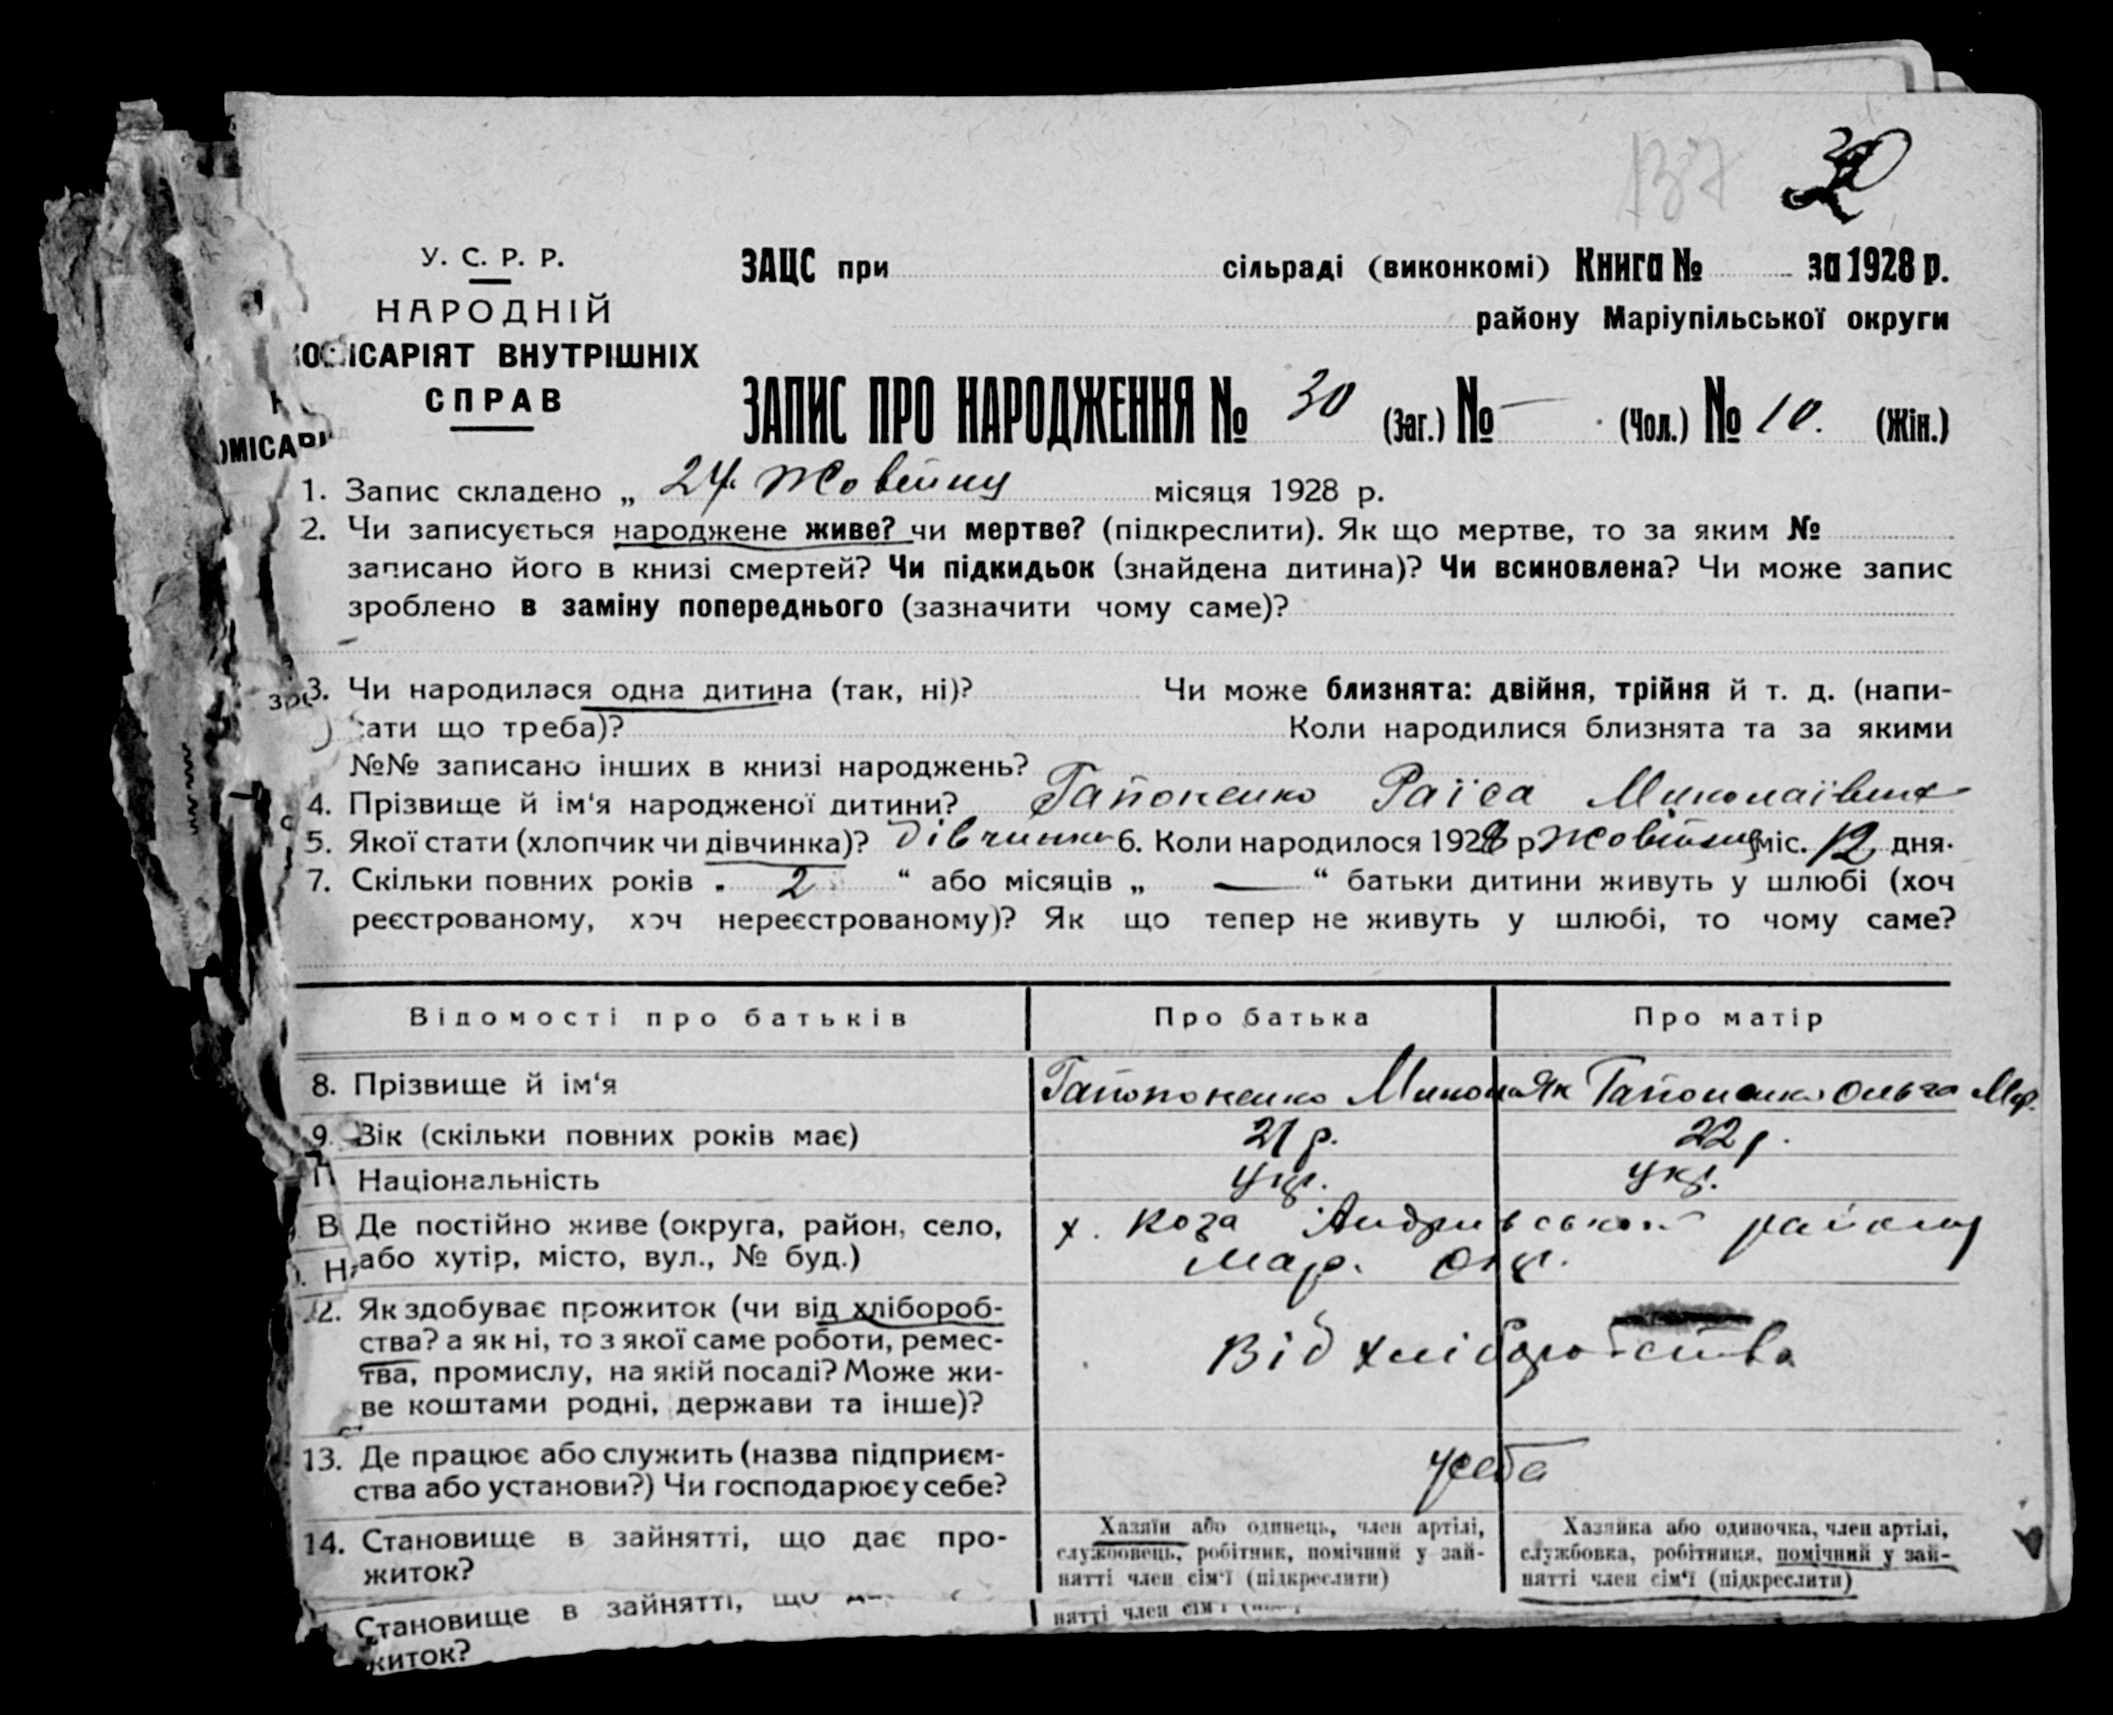 137 30
У. С. Р. Р.
НАРОДНІЙ
КОМІСАРІЯТ ВНУТРІШНІХ
СПРАВ
ОМІСАРІ
ЗАЦС при сільраді (виконкомі) Книга № за 1928 р.
району Маріупільської округи
ЗАПИС ПРО НАРОДЖЕННЯ № 30 (Заг.) № — (Чол.) № 10. (Жін.)
1. Запис складено „ 24. Жовтня місяця 1928 р.
2. Чи записується народжене живе? чи мертве? (підкреслити). Як що мертве, то за яким №
записано його в книзі смертей? Чи підкидьок (знайдена дитина)? Чи всиновлена? Чи може запис
зроблено в заміну попереднього (зазначити чому саме)?
—
3. Чи народилася одна дитина (так, ні)? Чи може близнята: двійня, трійня й т. д. (напи-
сати що треба)? Коли народилися близнята та за якими
№№ записано інших в книзі народжень?
4. Прізвище й ім‘я народженої дитини? Гапоненко Раїса Миколаївна
5. Якої стати (хлопчик чи дівчинка)? дівчинка 6. Коли народилося 1928 р. Жовтня міс. 12 дня.
7. Скільки повних років „ 2 “ або місяців „ — “ батьки дитини живуть у шлюбі (хоч
реєстрованому, хоч нереєстрованому)? Як що тепер не живуть у шлюбі, то чому саме?
Відомості про батьків Про батька Про матір
8. Прізвище й ім‘я Гапопоненко Миколай Гапоненко Ольга
9. Вік (скільки повних років має) 21 р. 22 р.
Національність Укр. Укр.
Де постійно живе (округа, район, село, х. Коза Андріівського району
або хутір, місто, вул., № буд.) Мар. Окр.
12. Як здобуває прожиток (чи від хлібороб-
ства? а як ні, то з якої саме роботи, ремес- Від хліборобства
тва, промислу, на якій посаді? Може жи-
ве коштами родні, держави та інше)?
13. Де працює або служить (назва підприєм- усеба
ства або установи?) Чи господарює у себе?
14. Становище в зайнятті, що дає про- Хазяїн або одинець, член артілі, Хазяйка або одиночка, член артілі,
житок? службовець, робітник, помічний у зай- службовка, робітниця, помічний у зай-
нятті член сім‘ї (підкреслити) нятті член сім‘ї (підкреслити)
Становище в зайнятті, що нятті член сім‘ї
житок?